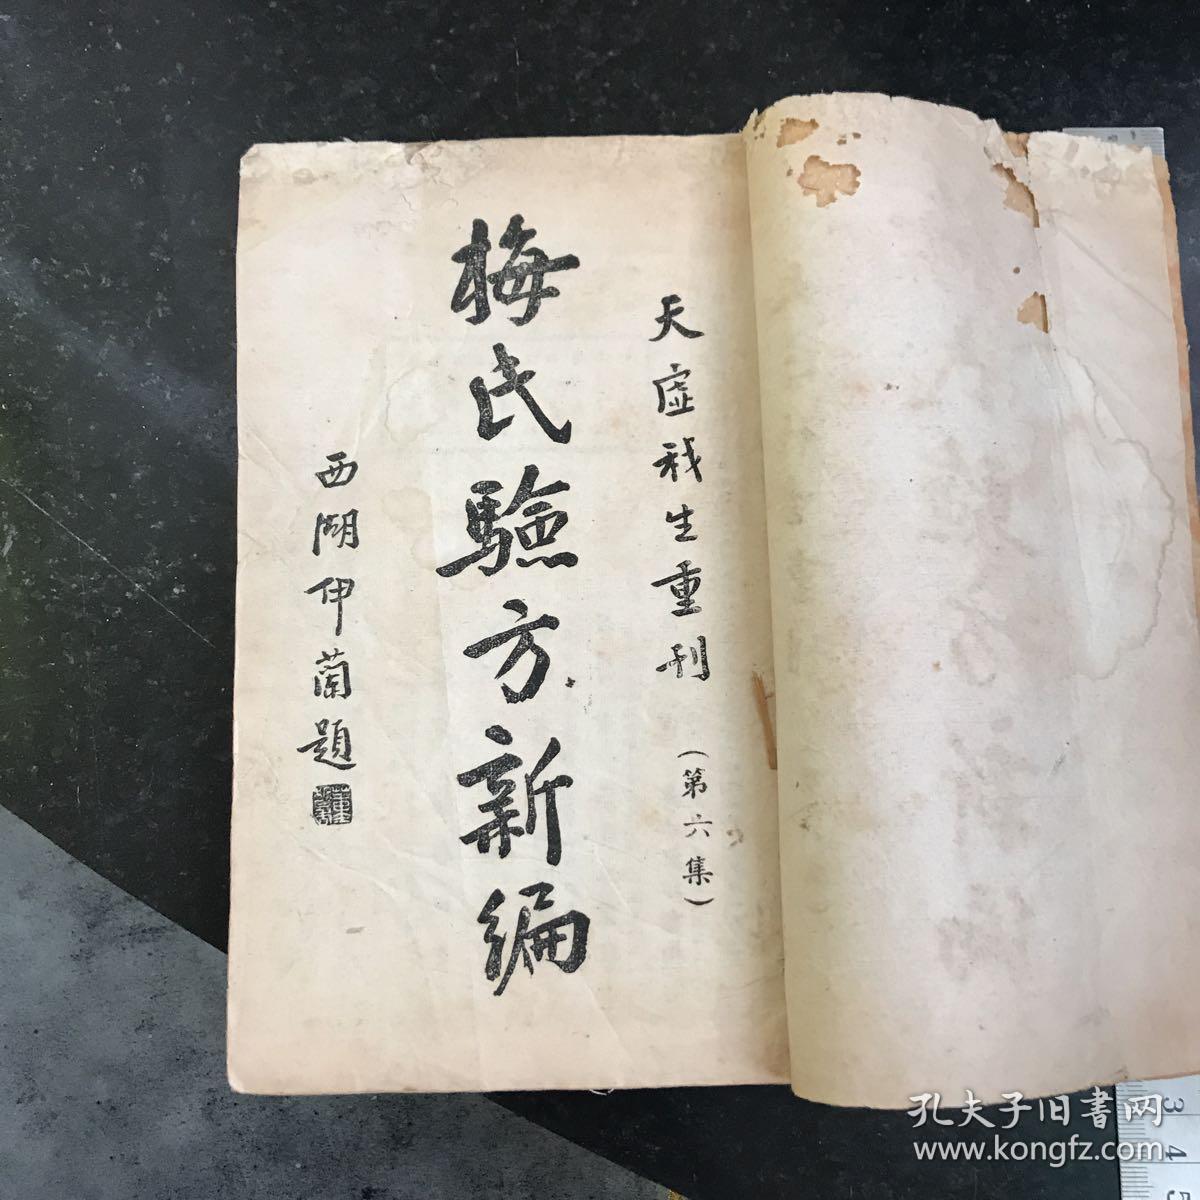 天虛我生重刊
（第六集）
梅氏驗方新編
西湖伊蘭題
孔夫子旧书网
www.kongfz.com
3
4
5